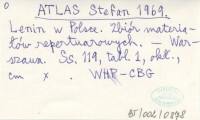 o ATLAS Stefan 1969.
Lenin w Polsce. Zbiór materia-
łów repertuarowych. — War-
szawa. Ss. 119, tabl. 1, okł.,
cm x . WHP-CBG
BJ/002/0878